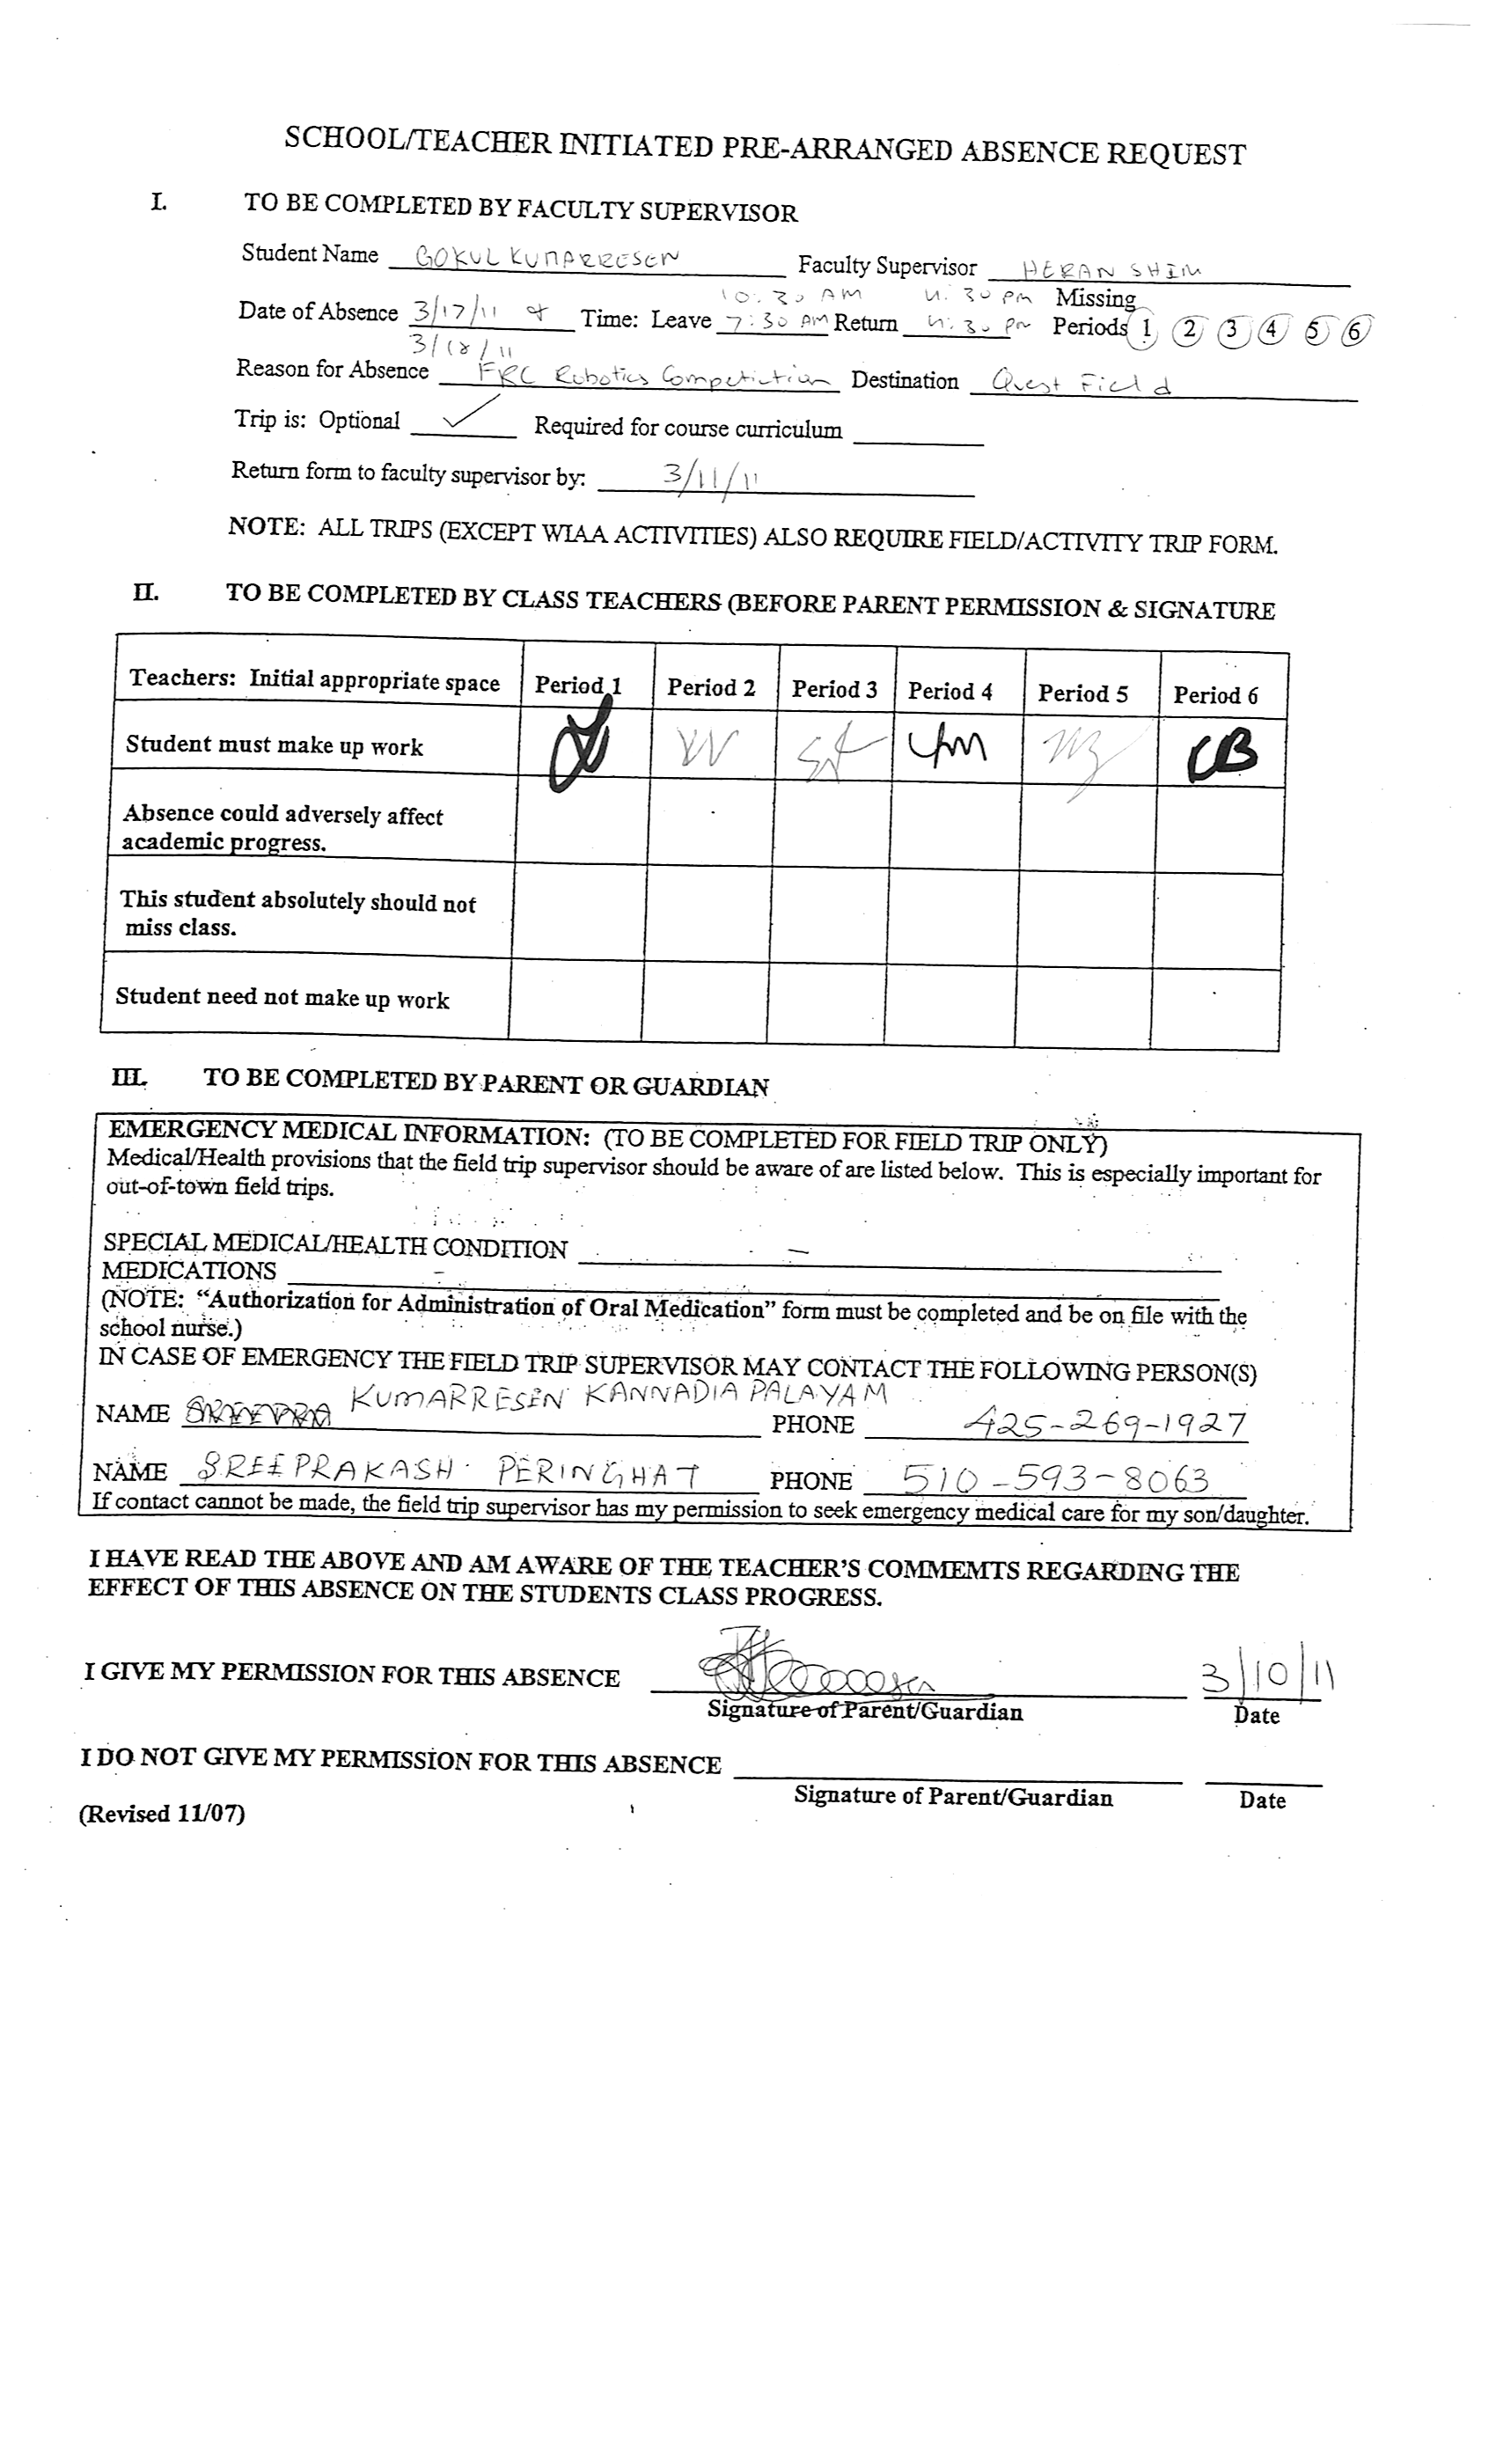 SCHOOL/TEACHER INITIATED PRE-ARRANGED ABSENCE REQUEST
I. TO BE COMPLETED BY FACULTY SUPERVISOR
Student Name GOKUL KUMARRESEN Faculty Supervisor HERAN SHIM
10:30 AM 4:30 pm Missing
Date of Absence 3/17/11 & Time: Leave 7:30 AM Return 4:30 pm Periods 1 2 3 4 5 6
3/18/11
Reason for Absence FRC Robotics Competiction Destination Qwest Field
Trip is: Optional ✓ Required for course curriculum
Return form to faculty supervisor by: 3/11/11
NOTE: ALL TRIPS (EXCEPT WIAA ACTIVITIES) ALSO REQUIRE FIELD/ACTIVITY TRIP FORM.
II. TO BE COMPLETED BY CLASS TEACHERS (BEFORE PARENT PERMISSION & SIGNATURE
Teachers: Initial appropriate space Period 1 Period 2 Period 3 Period 4 Period 5 Period 6
Student must make up work CB
Absence could adversely affect
academic progress.
This student absolutely should not
miss class.
Student need not make up work
III. TO BE COMPLETED BY PARENT OR GUARDIAN
EMERGENCY MEDICAL INFORMATION: (TO BE COMPLETED FOR FIELD TRIP ONLY)
Medical/Health provisions that the field trip supervisor should be aware of are listed below. This is especially important for
out-of-town field trips.
SPECIAL MEDICAL/HEALTH CONDITION –
MEDICATIONS –
(NOTE: “Authorization for Administration of Oral Medication” form must be completed and be on file with the
school nurse.)
IN CASE OF EMERGENCY THE FIELD TRIP SUPERVISOR MAY CONTACT THE FOLLOWING PERSON(S)
NAME KUMARRESEN KANNADIA PALAYAM PHONE 425-269-1927
NAME SREEPRAKASH PERINGHAT PHONE 510-593-8063
If contact cannot be made, the field trip supervisor has my permission to seek emergency medical care for my son/daughter.
I HAVE READ THE ABOVE AND AM AWARE OF THE TEACHER’S COMMEMTS REGARDING THE
EFFECT OF THIS ABSENCE ON THE STUDENTS CLASS PROGRESS.
I GIVE MY PERMISSION FOR THIS ABSENCE 3/10/11
Signature of Parent/Guardian Date
I DO NOT GIVE MY PERMISSION FOR THIS ABSENCE
Signature of Parent/Guardian Date
(Revised 11/07)